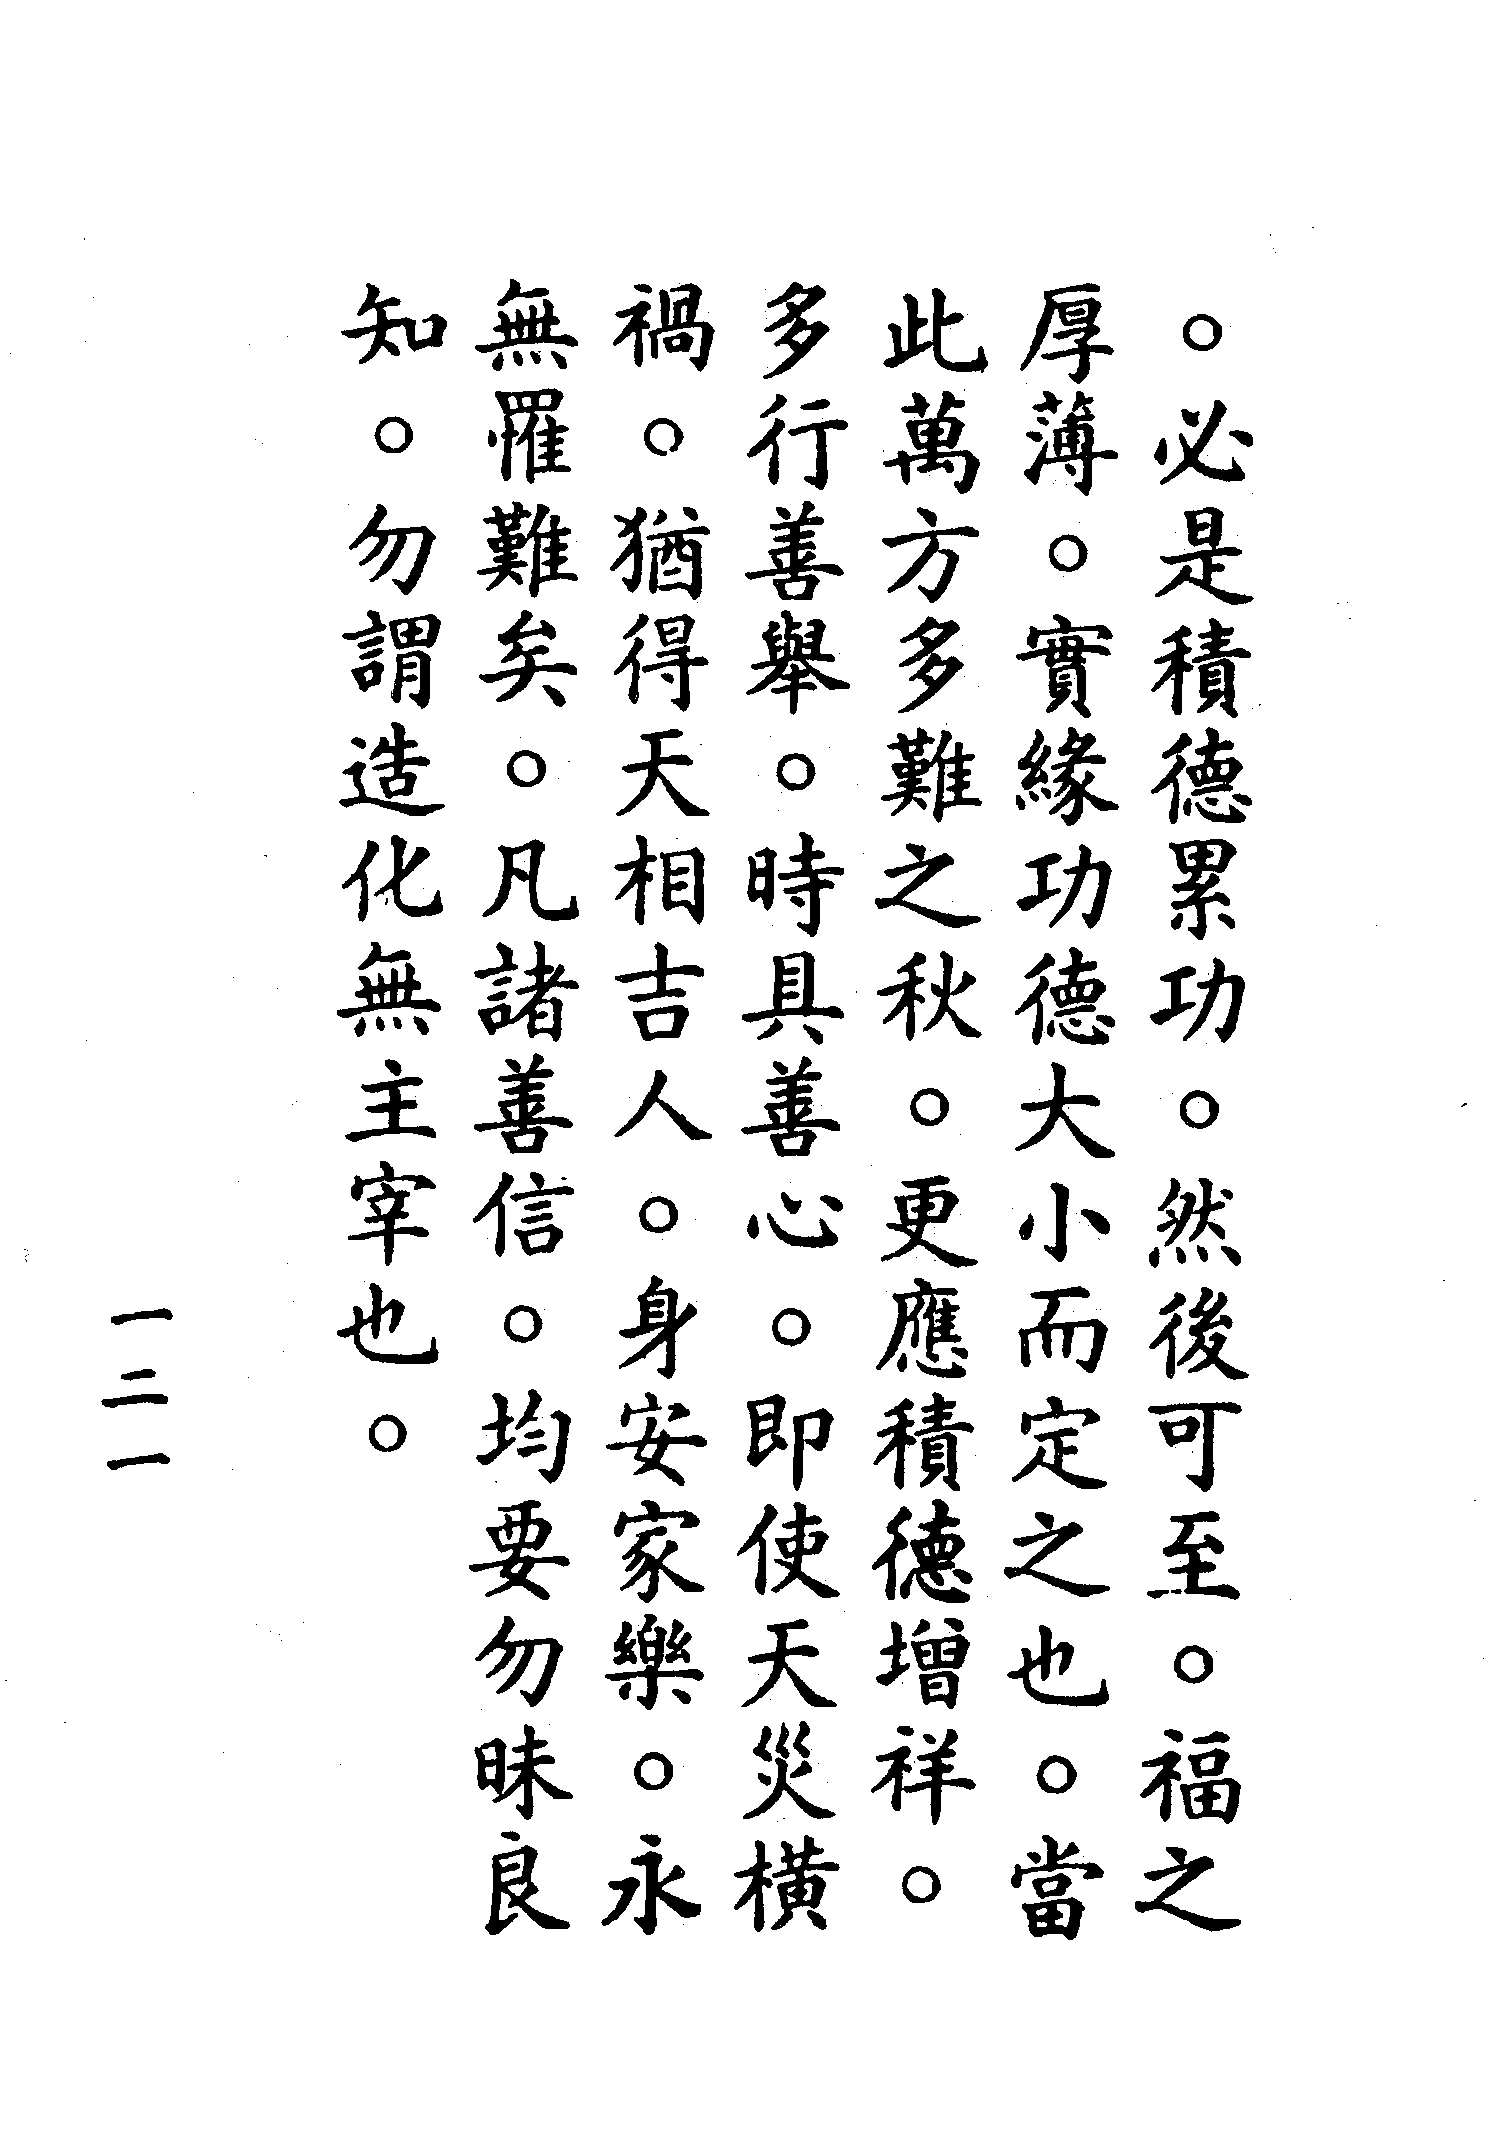 。必是積德累功。然後可至。福之
厚薄。實緣功德大小而定之也。當
此萬方多難之秋。更應積德增祥。
多行善舉。時具善心。即使天災橫
禍。猶得天相吉人。身安家樂。永
無罹難矣。凡諸善信。均要勿昧良
知。勿謂造化無主宰也。
一二一